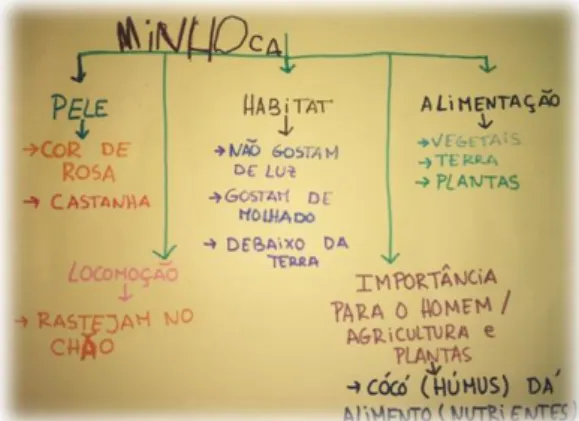 MiNHOCA
PELE
→ COR DE
ROSA
→ CASTANHA
LOCOMOÇÃO
→ RASTEJAM NO
CHÃO
HABiTAT
→ NÃO GOSTAM
DE LUZ
→ GOSTAM DE
MOLHADO
→ DEBAiXO DA
TERRA
ALiMENTAÇÃO
→ VEGETAiS
→ TERRA
→ PLANTAS
IMPORTÂNCiA
PARA O HOMEM /
AGRiCULTURA e
PLANTAS
→ CÓCÓ (HÚMUS) DÁ
ALiMENTO (NUTRiENTES)